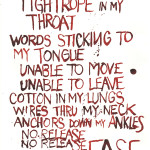 TIGHTROPE IN MY
THROAT
WORDS STICKING TO
MY TONGUE
UNABLE TO MOVE
UNABLE TO LEAVE
COTTON IN MY LUNGS
WIRES THRU MY NECK
ANCHORS DOWN MY ANKLES
NO RELEASE
NO RELEASE
EASE